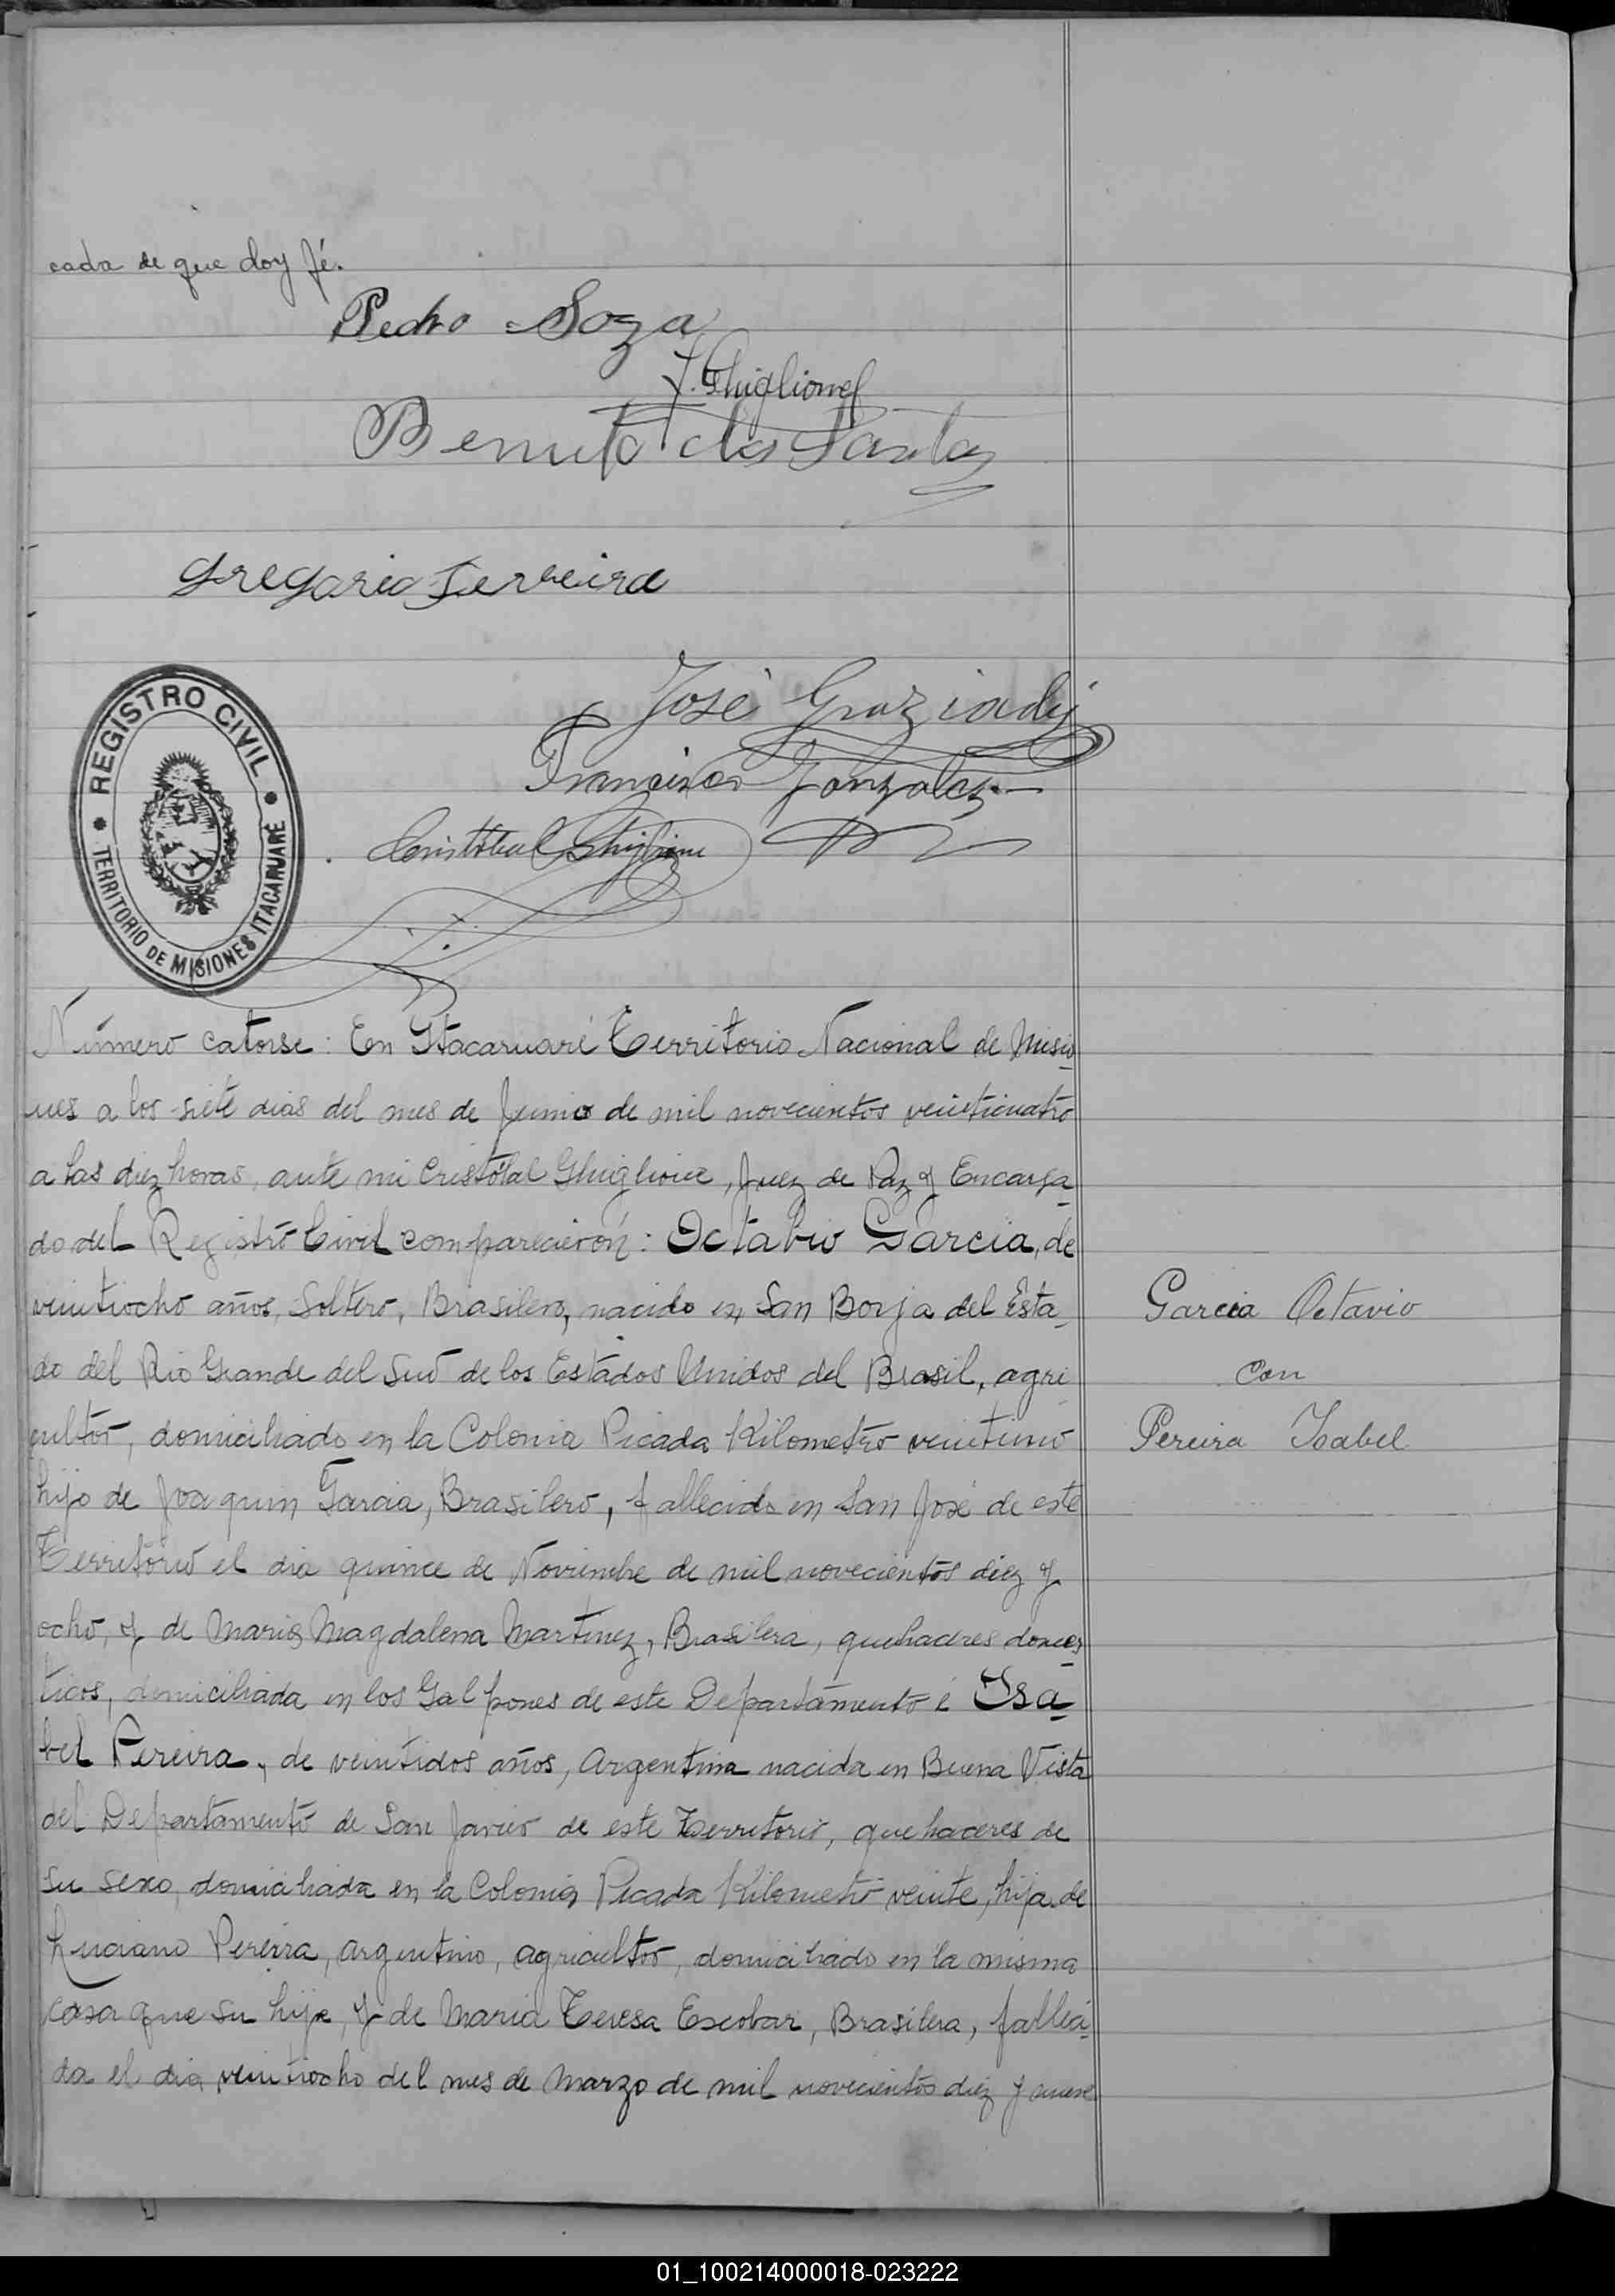 cada de que doy fé.
Pedro Soza
F. Ghiglione
Benito dos Santos
Gregorio Ferreira
José Graziadij
Francisco Gonzalez
Cristóbal Ghiglione
REGISTRO CIVIL
TERRITORIO DE MISIONES ITACARUARÉ
Número catorse: En Ytacaruaré Territorio Nacional de Misio_
nes a los siete dias del mes de Junio de mil novecientos veinticuatro
a las diez horas, ante mi Cristóbal Ghiglione, Juez de Paz y Encarga_
do del Registro Civil comparecieron: Octabio Garcia, de
veintiocho años, Soltero, Brasilero, nacido en San Borja del Esta_
do del Rio Grande del Sud de los Estados Unidos del Brasil, agri_
cultor, domiciliado en la Colonia Picada Kilometro veintiuno
hijo de Joaquin Garcia, Brasilero, fallecido en San José de este
Territorio el dia quince de Noviembre de mil novecientos diez y
ocho, y de Maria Magdalena Martinez, Brasilera, quehaceres domes_
ticos, domiciliada en los Galpones de este Departamento é Isa_
bel Pereira, de veintidos años, Argentina nacida en Buena Vista
del Departamento de San Javier de este Territorio, quehaceres de
su sexo, domiciliada en la Colonia Picada Kilometro veinte, hija de
Luciano Pereira, argentino, agricultor, domiciliado en la misma
casa que su hija, y de Maria Teresa Escobar, Brasilera, falleci_
da el dia veintiocho del mes de Marzo de mil novecientos diez y nueve
Garcia Octavio
con
Pereira Isabel
01_100214000018-023222